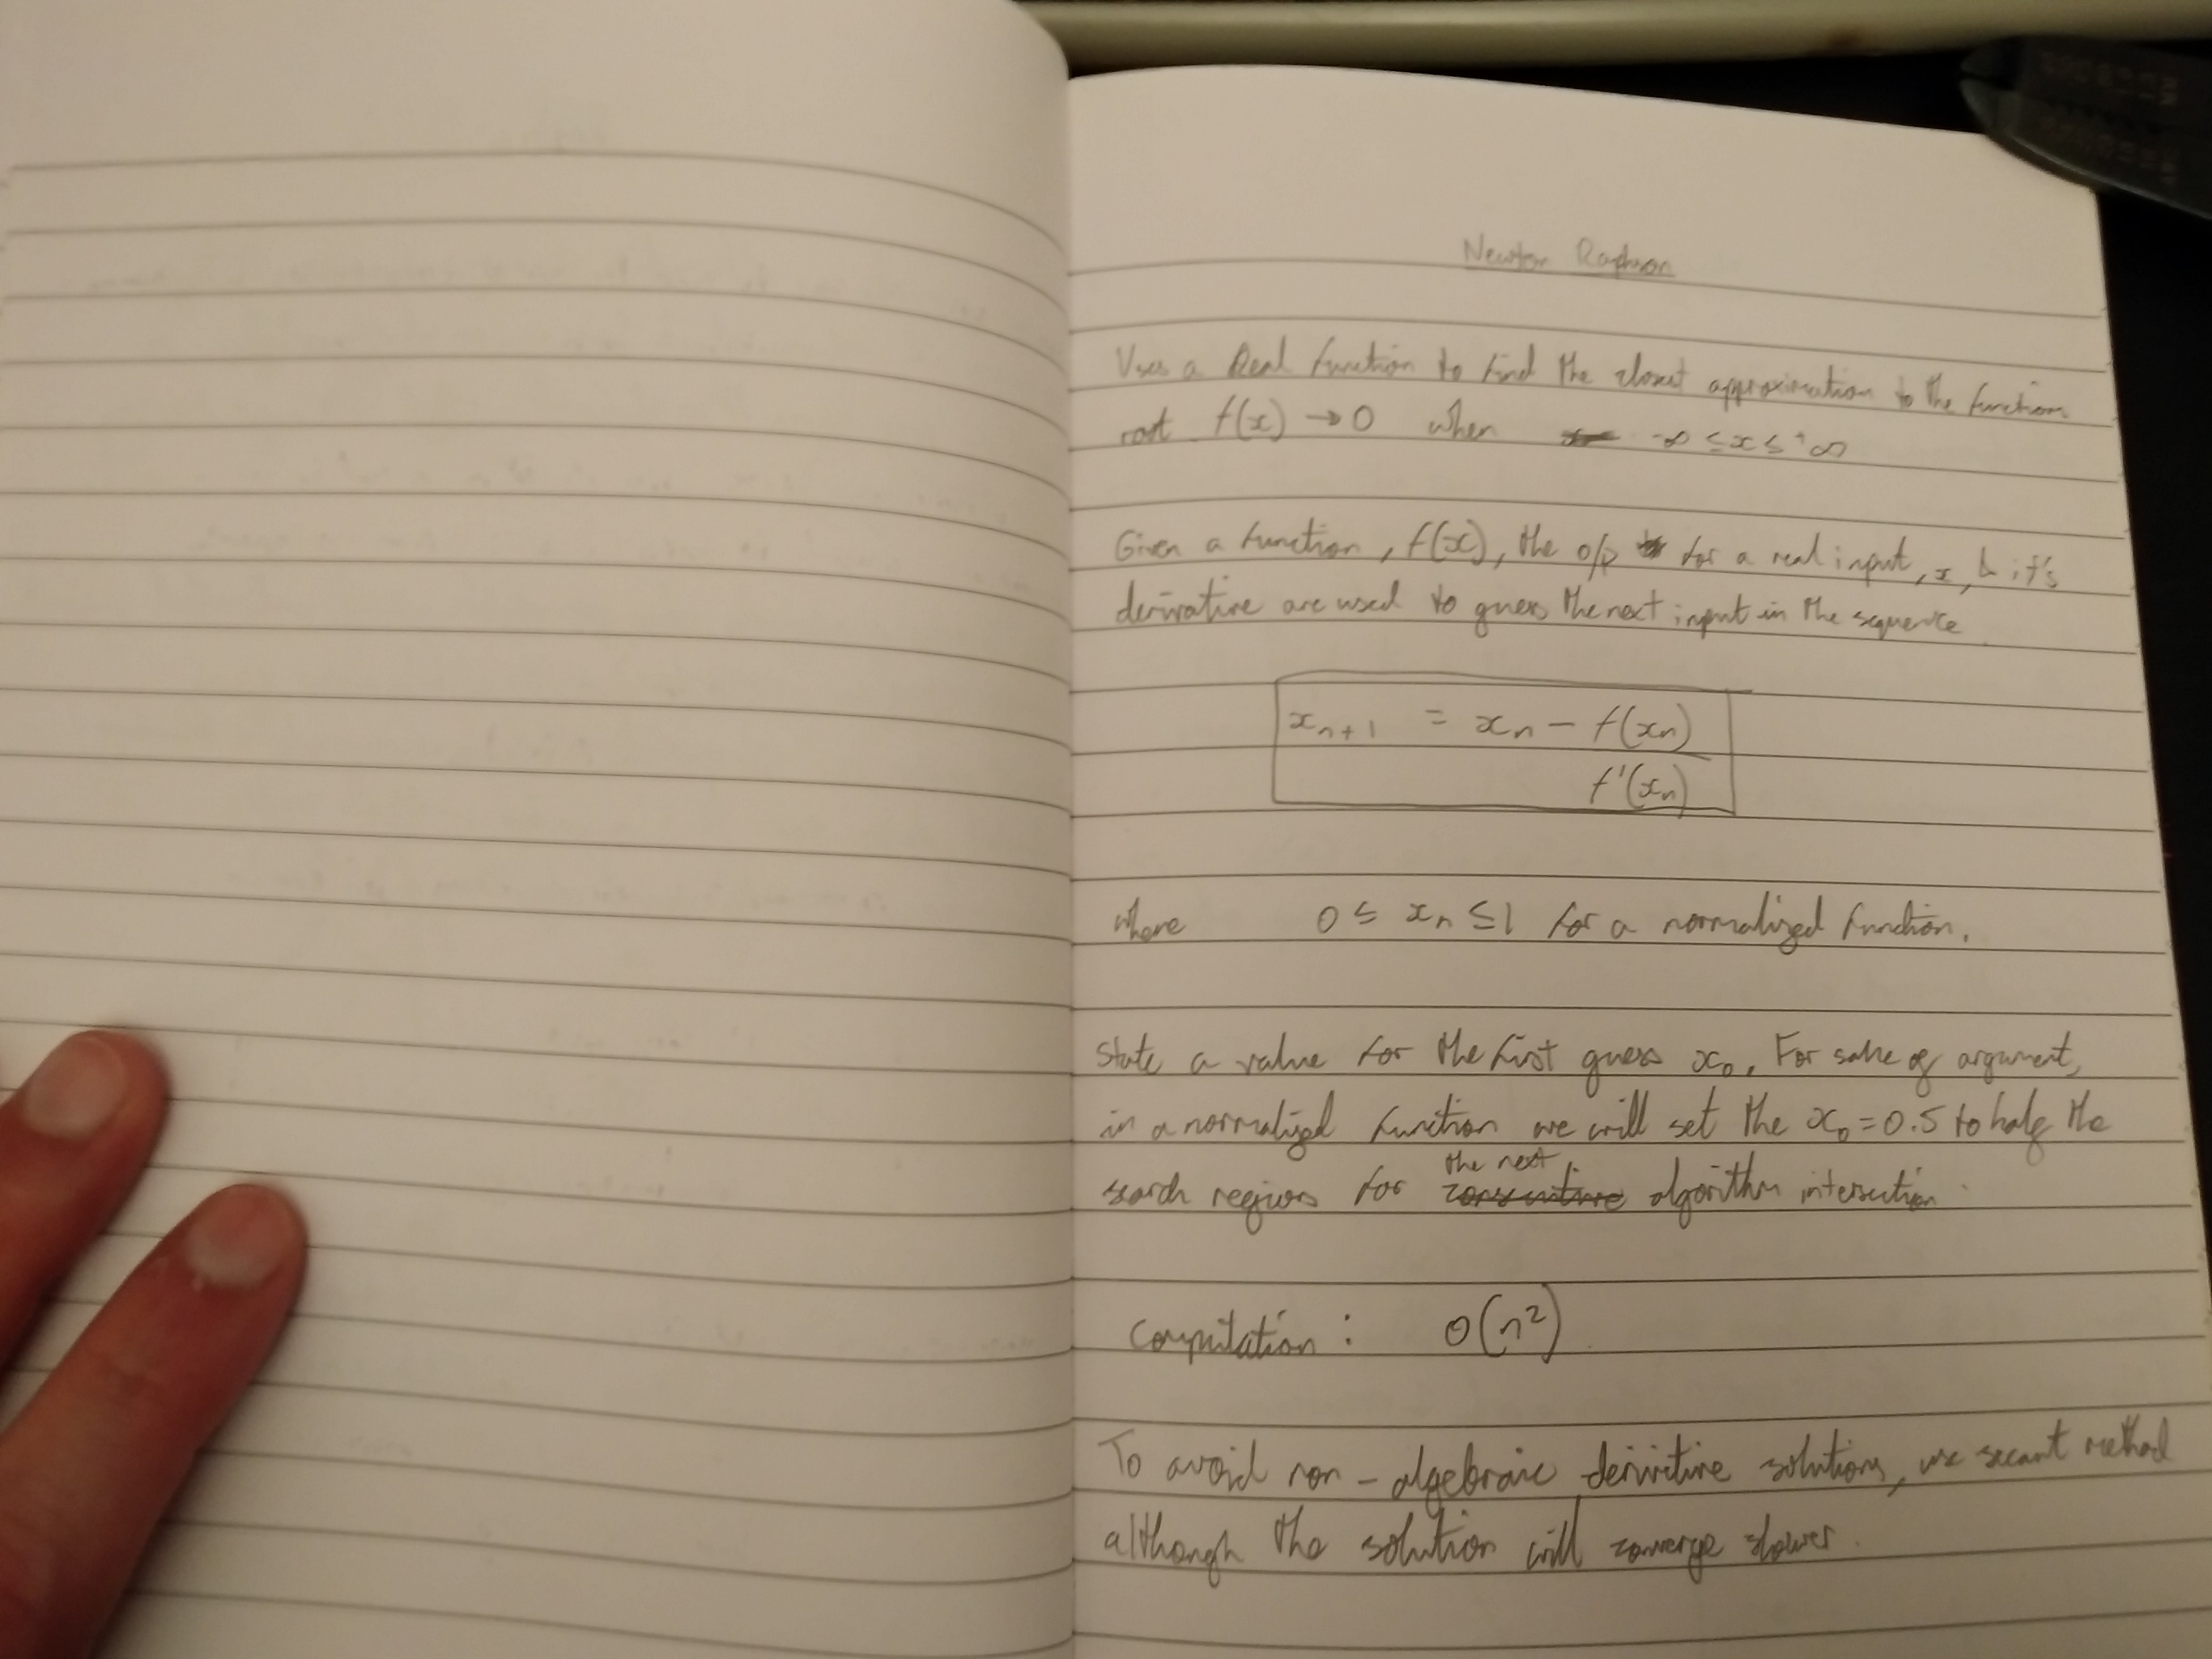 Newton Raphson
Uses a Real function to find the closest approximation to the function
root f(x) → 0 when -∞ ≤ x ≤ +∞
Given a function, f(x), the o/p for a real input, x, & it's
derivative are used to guess the next input in the sequence
x_{n+1} = x_n - f(x_n)
f'(x_n)
where 0 ≤ x_n ≤ 1 for a normalized function.
State a value for the first guess x_0. For sake of argument,
in a normalized function we will set the x_0 = 0.5 to half the
the next
search regions for algorithm intersection.
Computation : O(n²)
To avoid non-algebraic derivitive solutions, use secant method
although the solution will converge slower.